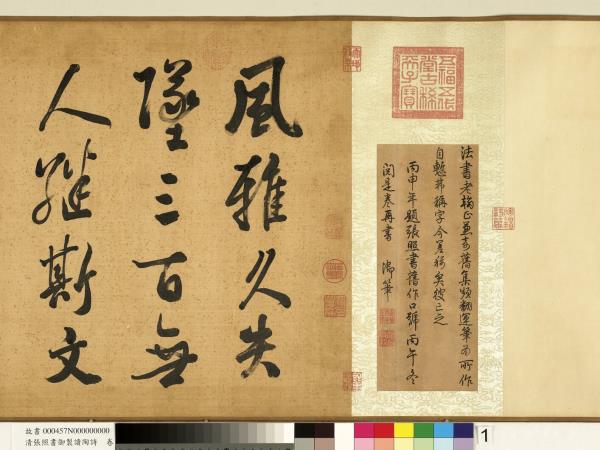 五福五代堂古稀天子寶
法書老舊集頻翻運筆而所作
自慙昔稱字今羞稱矣彼二之
丙申年題張照書舊作口號丙午冬
閱是卷再書 御筆
風雅久失
墜三百無
人繼斯文
故書 000457N000000000
清張照書御製讀陶詩 卷
1